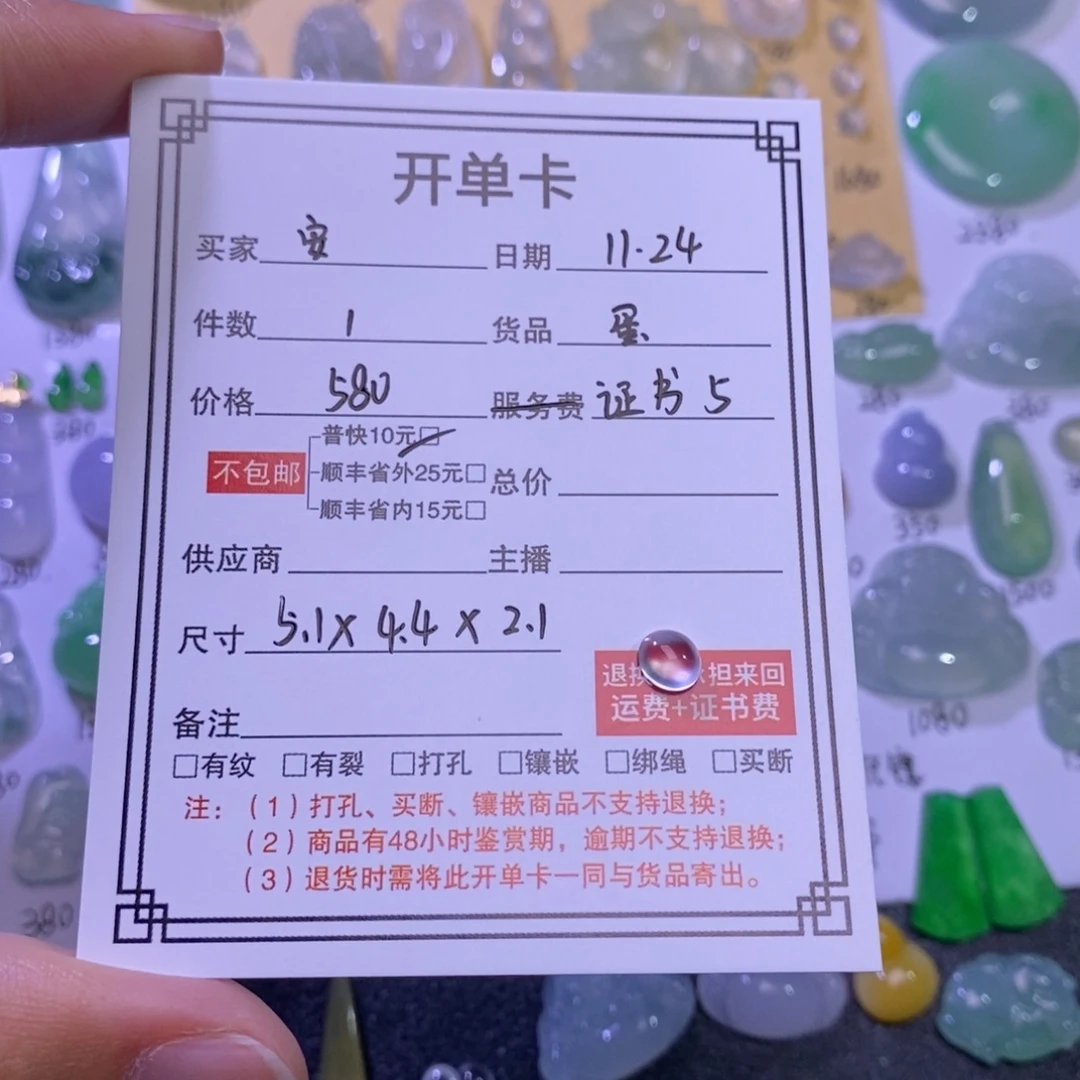 开单卡
买家 安 日期 11.24
件数 1 货品 蛋
价格 580 服务费 证书 5
普快10元☐
不包邮 顺丰省外25元☐ 总价
顺丰省内15元☐
供应商 主播
尺寸 5.1 x 4.4 x 2.1
退换 担来回
运费+证书费
备注
☐有纹 ☐有裂 ☐打孔 ☐镶嵌 ☐绑绳 ☐买断
注:(1)打孔、买断、镶嵌商品不支持退换;
(2)商品有48小时鉴赏期,逾期不支持退换;
(3)退货时需将此开单卡一同与货品寄出。
2380
380
280
380
350
1080
380